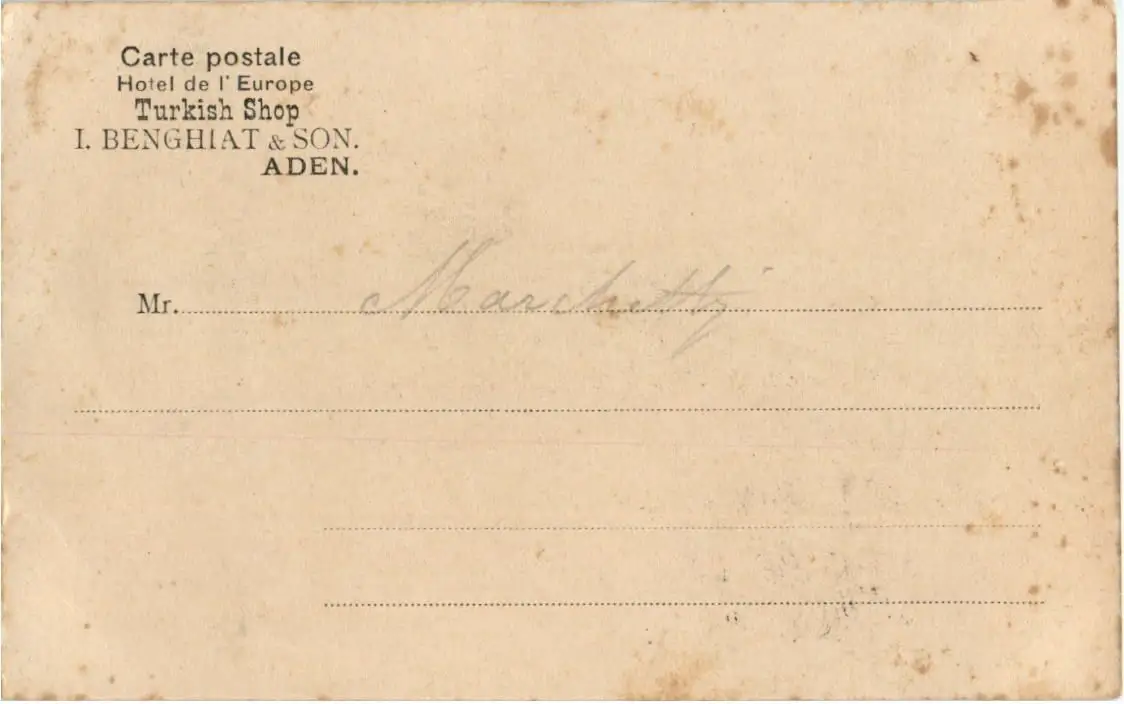 Carte postale
Hotel de l' Europe
Turkish Shop
I. BENGHIAT & SON.
ADEN.
Mr. Marchetti